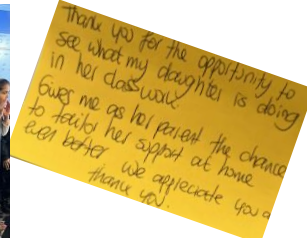 Thank you for the opportunity to
see what my daughter is doing
in her classwork.
Gives me as her parent the chance
to tailor her support at home
even better
we appreciate you
thank you.